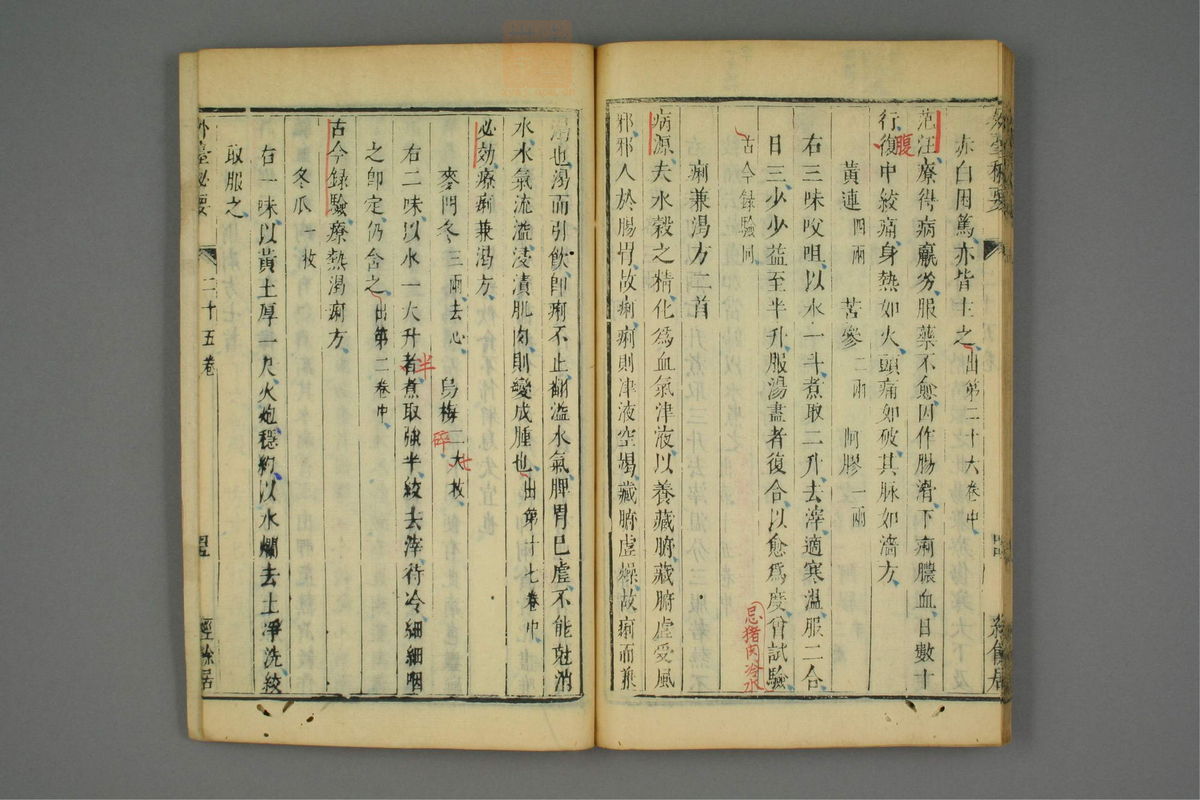 赤白困篤亦皆主之出第二十六卷中
范汪療得病羸劣服藥不愈因作腸滑下痢膿血日數十
行復中絞痛身熱如火頭痛如破其脉如濇方
腹
黃連四兩 苦參二兩 阿膠一兩
右三味㕮咀以水一斗煮取二升去滓適寒温服二合
日三少少益至半升服湯盡者復合以愈為度曾試驗
忌猪肉冷水
古今錄驗同
痢兼渴方二首
病源夫水穀之精化為血氣津液以養藏腑藏腑虛受風
邪邪人於腸胃故痢痢則津液空竭藏腑虛燥故痢而兼
渴也渴而引飲即痢不止翻溢水氣脾胃已虛不能尅消
水水氣流溢浸漬肌肉則變成腫也出第十七卷中
必効療痢兼渴方
麥門冬三兩去心 烏梅二大枚
七
碎
右二味以水一大升者煮取強半絞去滓待冷細細咽
半
之即定仍含之出第二卷中
古今錄驗療熱渴痢方
冬瓜一枚
右一味以黃土厚一尺火炮穩約以水爛去土凈洗絞
取服之
外臺秘要 二十五卷 經餘居